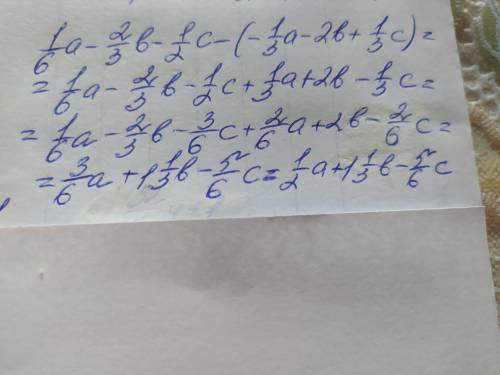 1/6 a - 2/3 в - 1/2 c - (-1/3 a - 2в + 1/3 c) =
= 1/6 a - 2/3 в - 1/2 c + 1/3 a + 2в - 1/3 c =
= 1/6 a - 2/3 в - 3/6 c + 2/6 a + 2в - 2/6 c =
= 3/6 a + 1 1/3 в - 5/6 c = 1/2 a + 1 1/3 в - 5/6 c